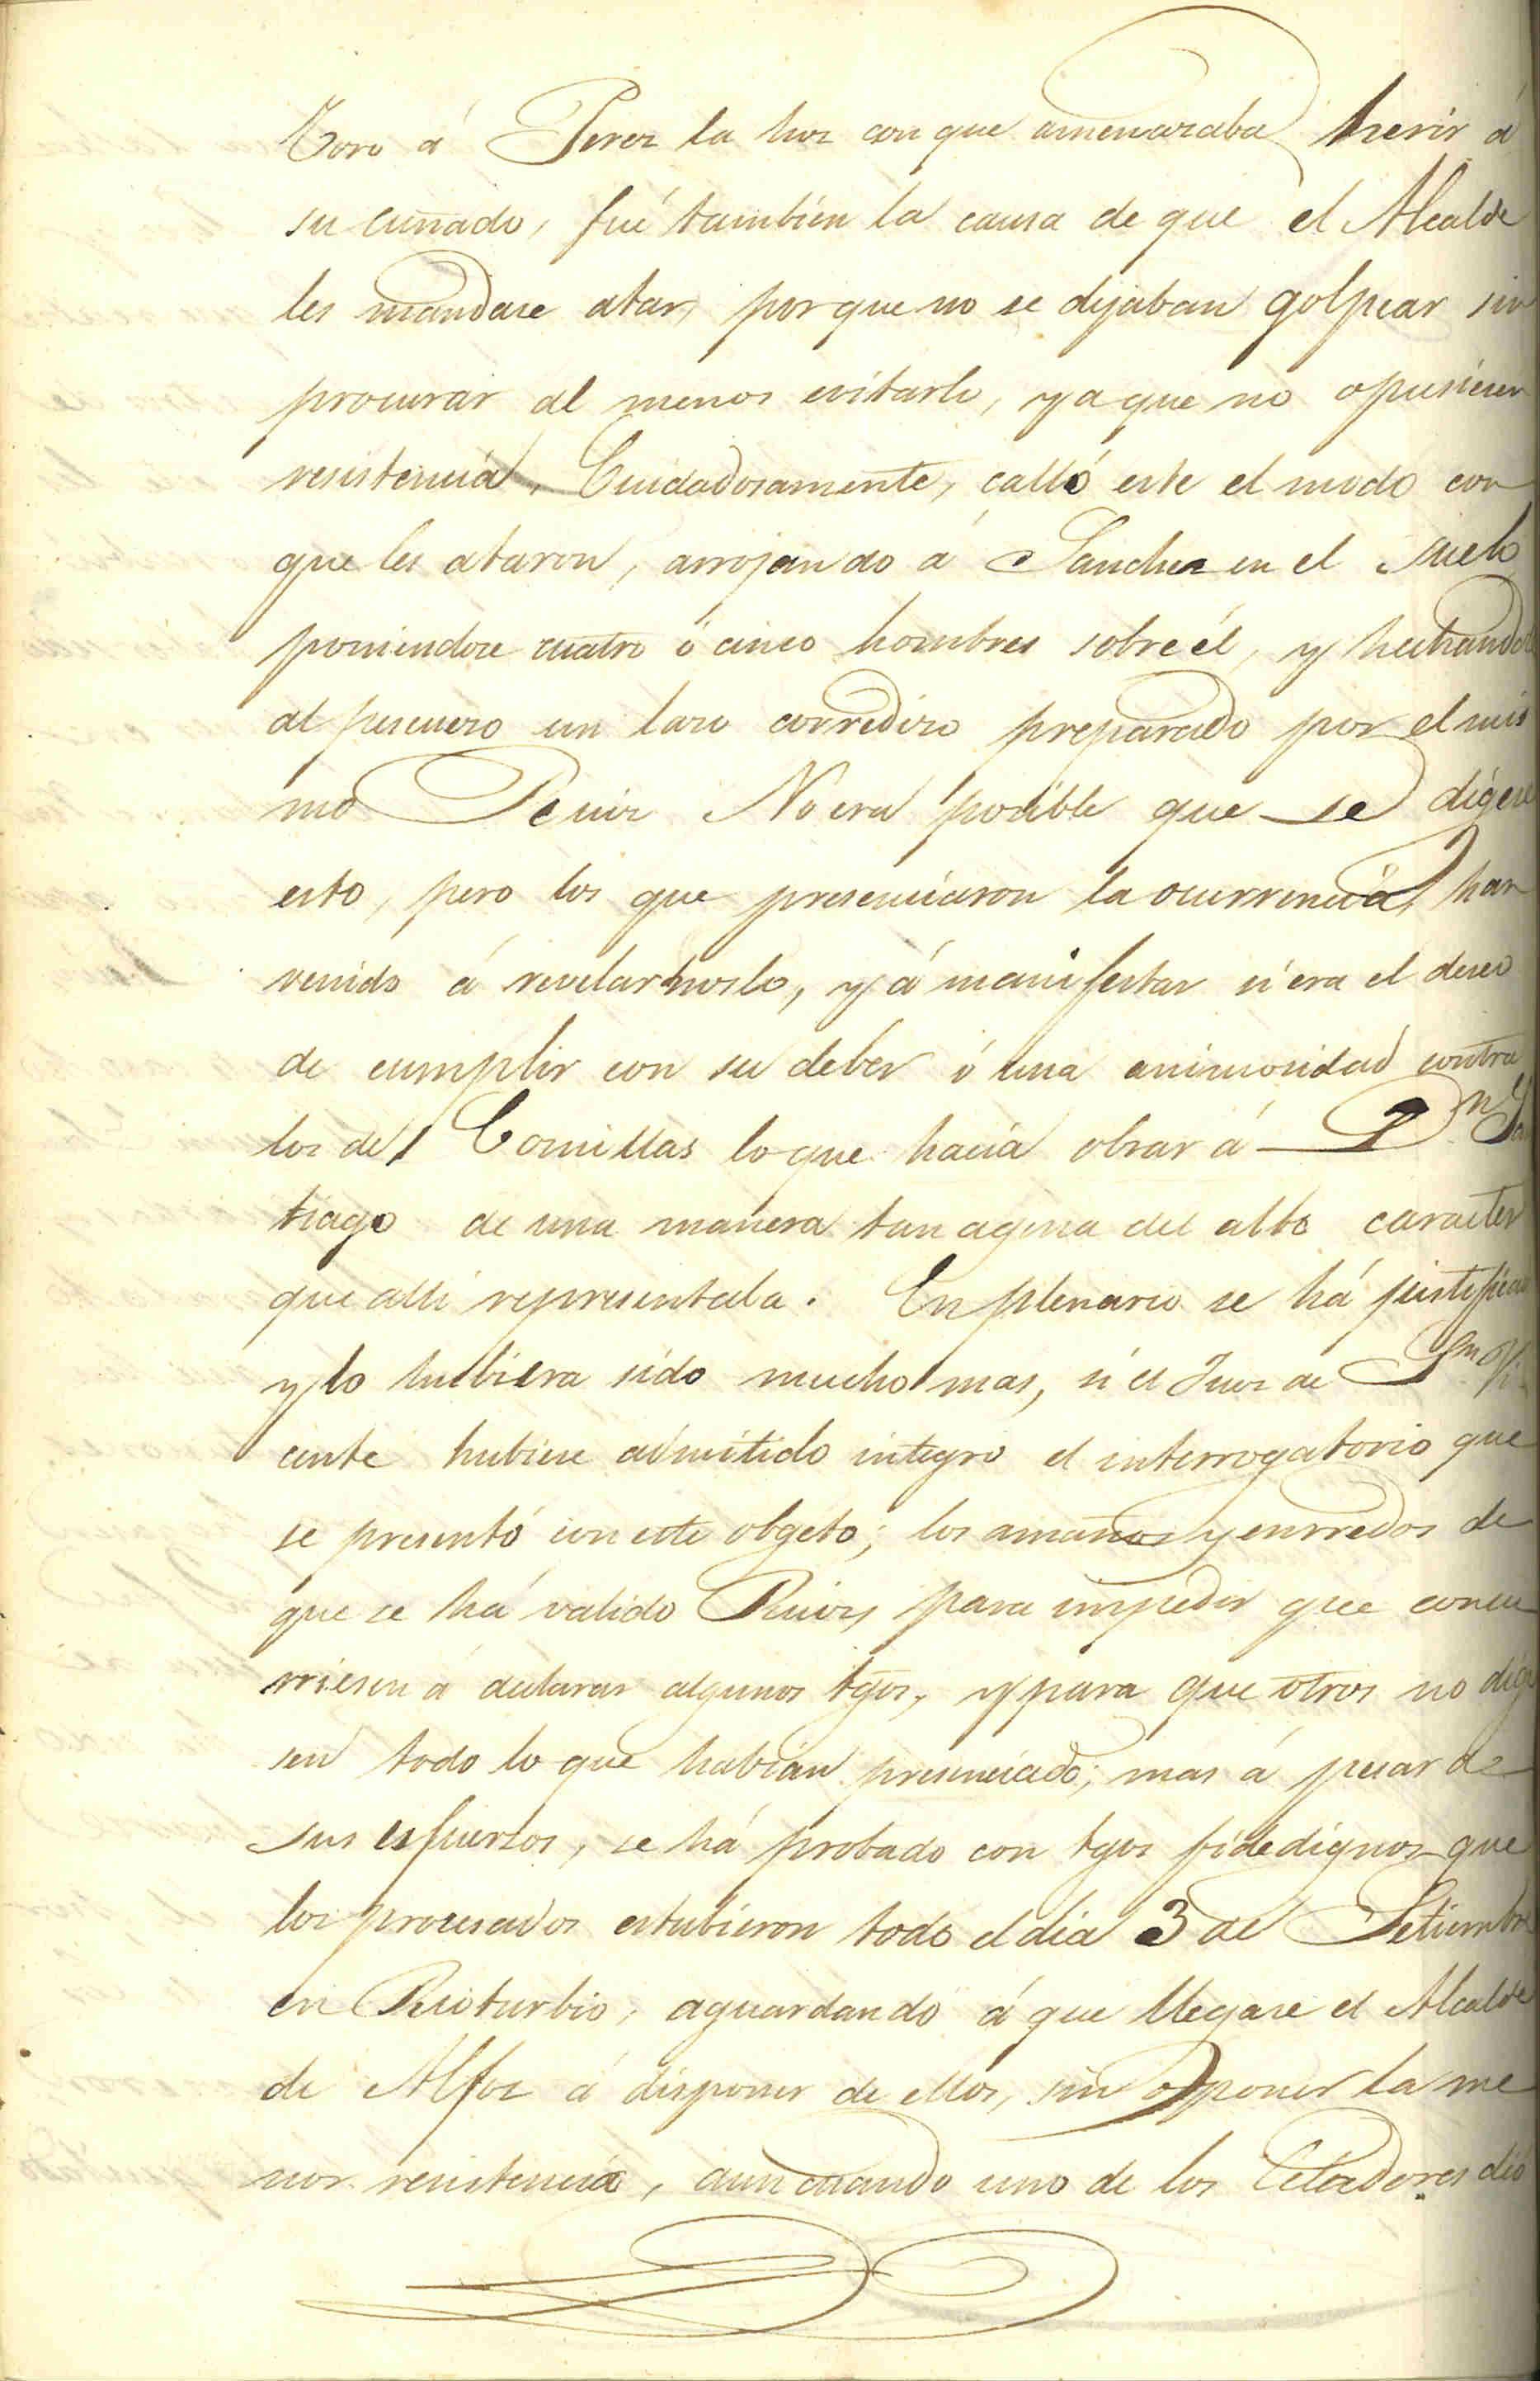 Toro á Perez la hoz con que amenazaba herir á
su cuñado, fué tambien la causa de que el Alcalde
les mandase atar, porque no se dejaban golpear sin
procurar al menos evitarlo, ya que no opusiesen
resistencia. Cuidadosamente, calló este el modo con
que les ataron, arrojando á Sanchez en el suelo
poniendose cuatro ó cinco hombres sobre él, y hechandole
al pescuezo un lazo corredizo preparado por el mis
mo Ruiz No era posible que se digese
esto, pero los que presenciaron la ocurrencia, han
venido á revelarnoslo, y á manifestar si era el deseo
de cumplir con su deber ó una animosidad contra
los de Comillas lo que hacia obrar á Dn San
tiago de una manera tan agena del alto caracter
que allí representaba. En plenario se há justificado
y lo hubiera sido mucho mas, si el Juez de Sn Vi
cente hubiese admitido integro el interrogatorio que
se presentó con este obgeto; los amaños y enrredos de
que se há valido Ruiz, para impedir que concu
rriesen á declarar algunos tgos, y para que otros no dige
sen todo lo que habian presenciado; mas á pesar de
sus esfuerzos, se há probado con tgos fidedignos que
los procesados estubieron todo el dia 3 de Setiembre
en Rioturbio, aguardando á que llegase el Alcalde
de Alfoz á disponer de ellos, sin oponer la me
nor resistencia, aun cuando uno de los Celadores dió